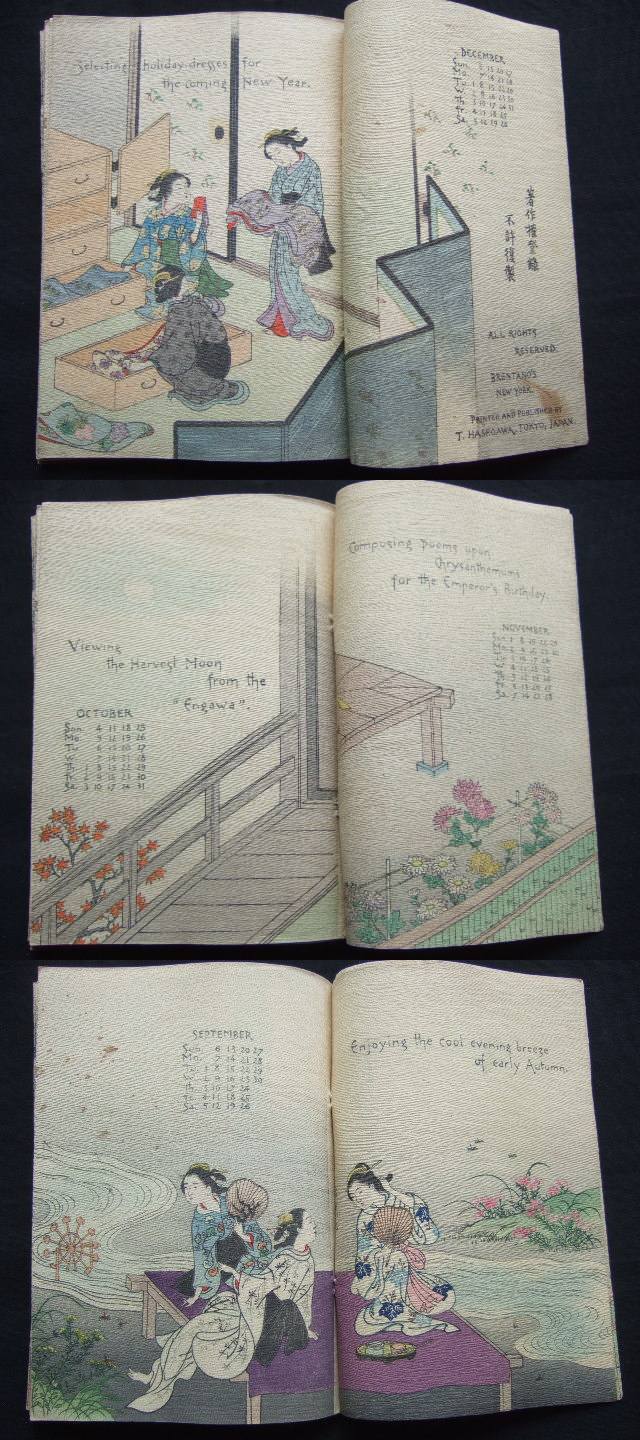 Selecting holiday dresses for
the coming New Year.
DECEMBER
Sun. 6 13 20 27
Mo. 7 14 21 28
Tu. 1 8 15 22 29
W. 2 9 16 23 30
Th. 3 10 17 24 31
Fr. 4 11 18 25
Sa. 5 12 19 26
著作權登錄
不許複製
ALL RIGHTS
RESERVED.
BRENTANO'S
NEW YORK.
PRINTED AND PUBLISHED BY
T. HASEGAWA, TOKYO, JAPAN.
Viewing
the Harvest Moon
from the
"Engawa".
OCTOBER
Sun. 4 11 18 25
Mo. 5 12 19 26
Tu. 6 13 20 27
W. 7 14 21 28
Th. 1 8 15 22 29
Fr. 2 9 16 23 30
Sa. 3 10 17 24 31
Composing Poems upon
Chrysanthemums
for the Emperor's Birthday.
NOVEMBER
Sun. 1 8 15 22 29
Mo. 2 9 16 23 30
Tu. 3 10 17 24
W. 4 11 18 25
Th. 5 12 19 26
Fr. 6 13 20 27
Sa. 7 14 21 28
SEPTEMBER
Sun. 6 13 20 27
Mo. 7 14 21 28
Tu. 1 8 15 22 29
W. 2 9 16 23 30
Th. 3 10 17 24
Fr. 4 11 18 25
Sa. 5 12 19 26
Enjoying the cool evening breeze
of early Autumn.